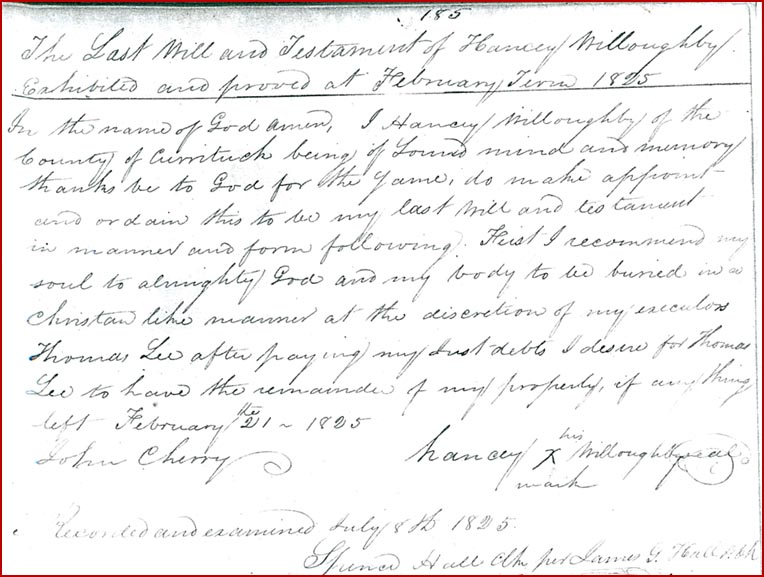 185
The Last Will and Testament of Hancey Willoughby.
Exhibited and proved at February Term 1825
In the name of God amen, I Hancey Willoughby of the
County of Currituck being of Sound mind and memory
thanks be to God for the Same, do make appoint
and ordain this to be my last Will and testament
in manner and form following. First I recommend my
soul to almighty God and my body to be buried in a
Christan like manner at the discretion of my executors
Thomas Lee after paying my Just debts I desire for Thomas
Lee to have the remainder of my property, if any thing
left February 21 ~ 1825
John Cherry
hancey his X mark Willoughby seal
Recorded and examined July 8th 1825.
Spence Hall Clk per James G. Hall